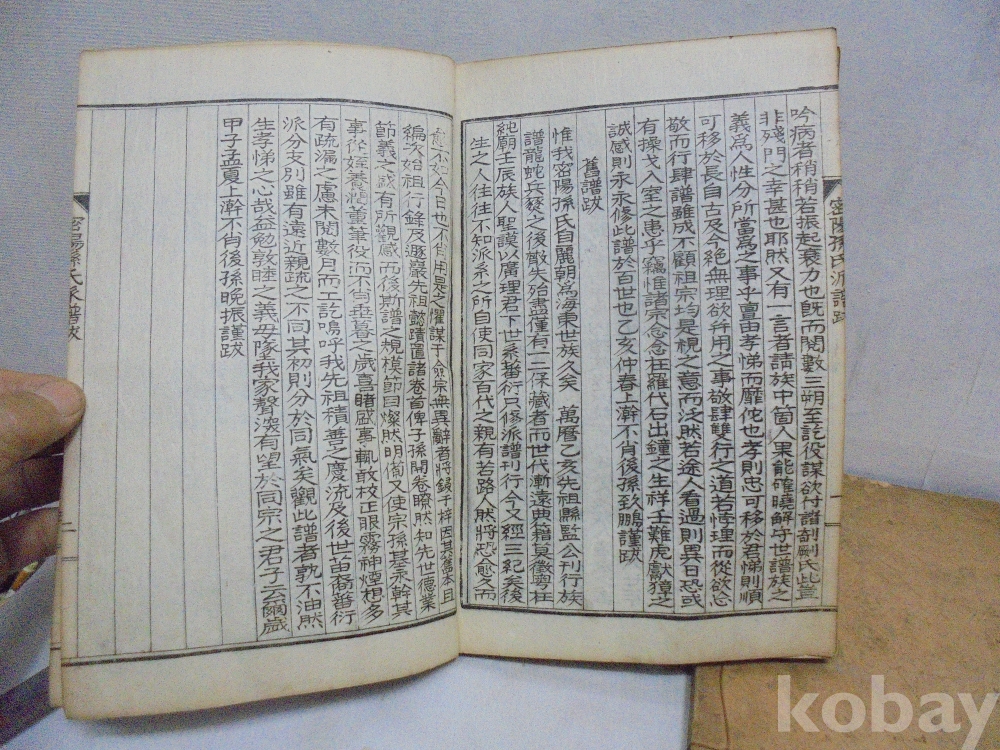 吟病者稍稍若振起衰力也旣而閱數三朔至訖役謀欲付譜剞劂氏此豈
非殘門之幸甚也耶然又有一言者請族中箇人果能確曉解守世譜族之
義爲人性分所當爲之事乎亶由孝悌而靡佗也孝則忠可移於君悌則順
可移於長自古及今絶無理欲幷用之事敬肆雙行之道若悖理而從欲忘
敬而行肆譜雖成不顧祖宗均是視之意而泛然若途人看過則異日恐或
有操戈入室之患乎竊惟諸宗念念在羅代石出鐘之生祥壬難虎獻獐之
誠感則永永修此譜於百世也乙亥仲春上澣不肖後孫致鵬謹跋
舊譜跋
惟我密陽孫氏自麗朝爲海東世族久矣 萬曆乙亥先祖縣監公刊行族
譜龍蛇兵燹之後散失殆盡僅有一二保藏者而世代漸遠典籍莫徵粤在
純廟壬辰族人聖謨以廣理君一世系蕃衍只修派譜刊行今又經三紀矣後
生之人往往不知派系之所自使同家百代之親有若路人然將恐愈久而
愈不如今日也不肖用是之懼謀于僉宗無異辭者將鋟于梓因其舊本且
編次始祖行錄及遯巖先祖懿蹟置諸卷首俾子孫開卷瞭然知先世德業
節義之咸有所觀感而後斯譜之規模節目燦然明備又使宗孫基永幹其
事從姪養潤董筆役而不肖垂暮之歲喜睹盛事輒敢校正眼霧神煙想多
有疏漏之慮未閱數月而工訖嗚呼我先祖積善之慶流及後世苗裔蕃衍
派分支別雖有遠近親疏之不同其初則分於同氣矣觀此譜者孰不油然
生孝悌之心哉益勉敦睦之義毋墜我家聲深有望於同宗之君子云爾歲
甲子孟夏上澣不肖後孫晩振謹跋
密陽孫氏派譜跋
密陽孫氏派譜跋
kobay